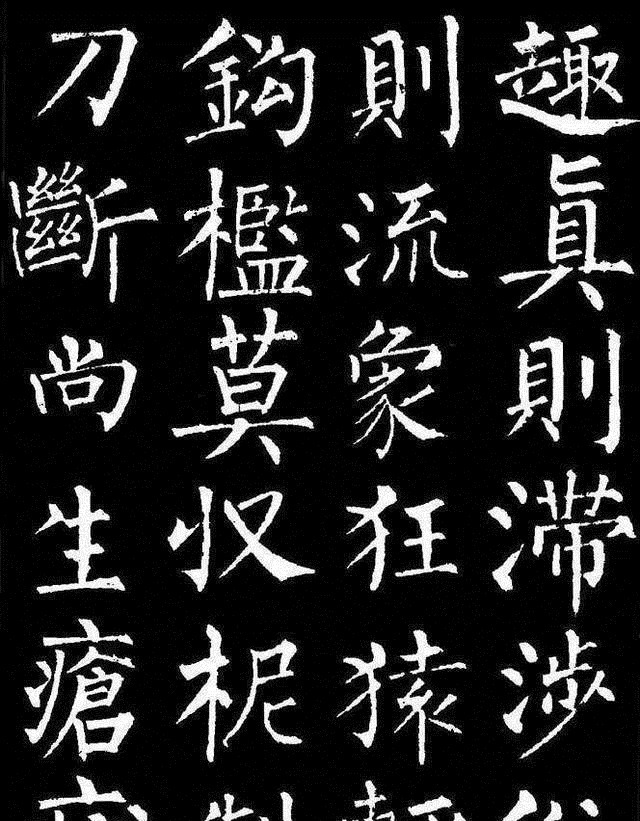 趣真則滯涉
則流象狂猿
鈎檻莫収柅
刀斷尚生瘡